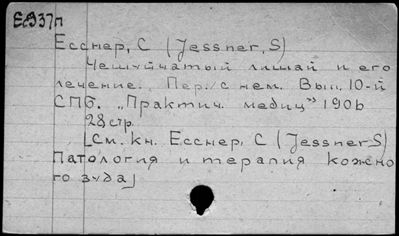 Е-937п
Есснер, С (Jessner, S)
Чешуйчатый лишай и его
лечение. Пер. с нем. Вып. 10-й
СПб. "Практич. медиц" 1906
28 стр.
[См. кн. Есснер, С (Jessner S)
Патология и терапия кожно
го зуда]